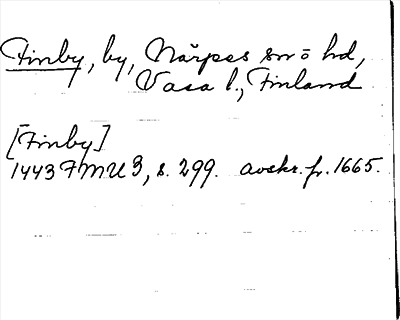 Finby, by, Närpes sn o hd,
Vasa l., Finland
[Finby]
1443 FMU 3, s. 299. avskr. fr. 1665.